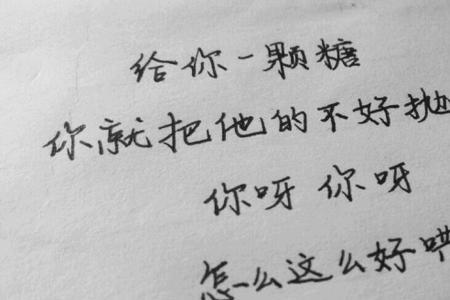 给你一颗糖
你就把他的不好抛
你呀 你呀
怎么这么好哄